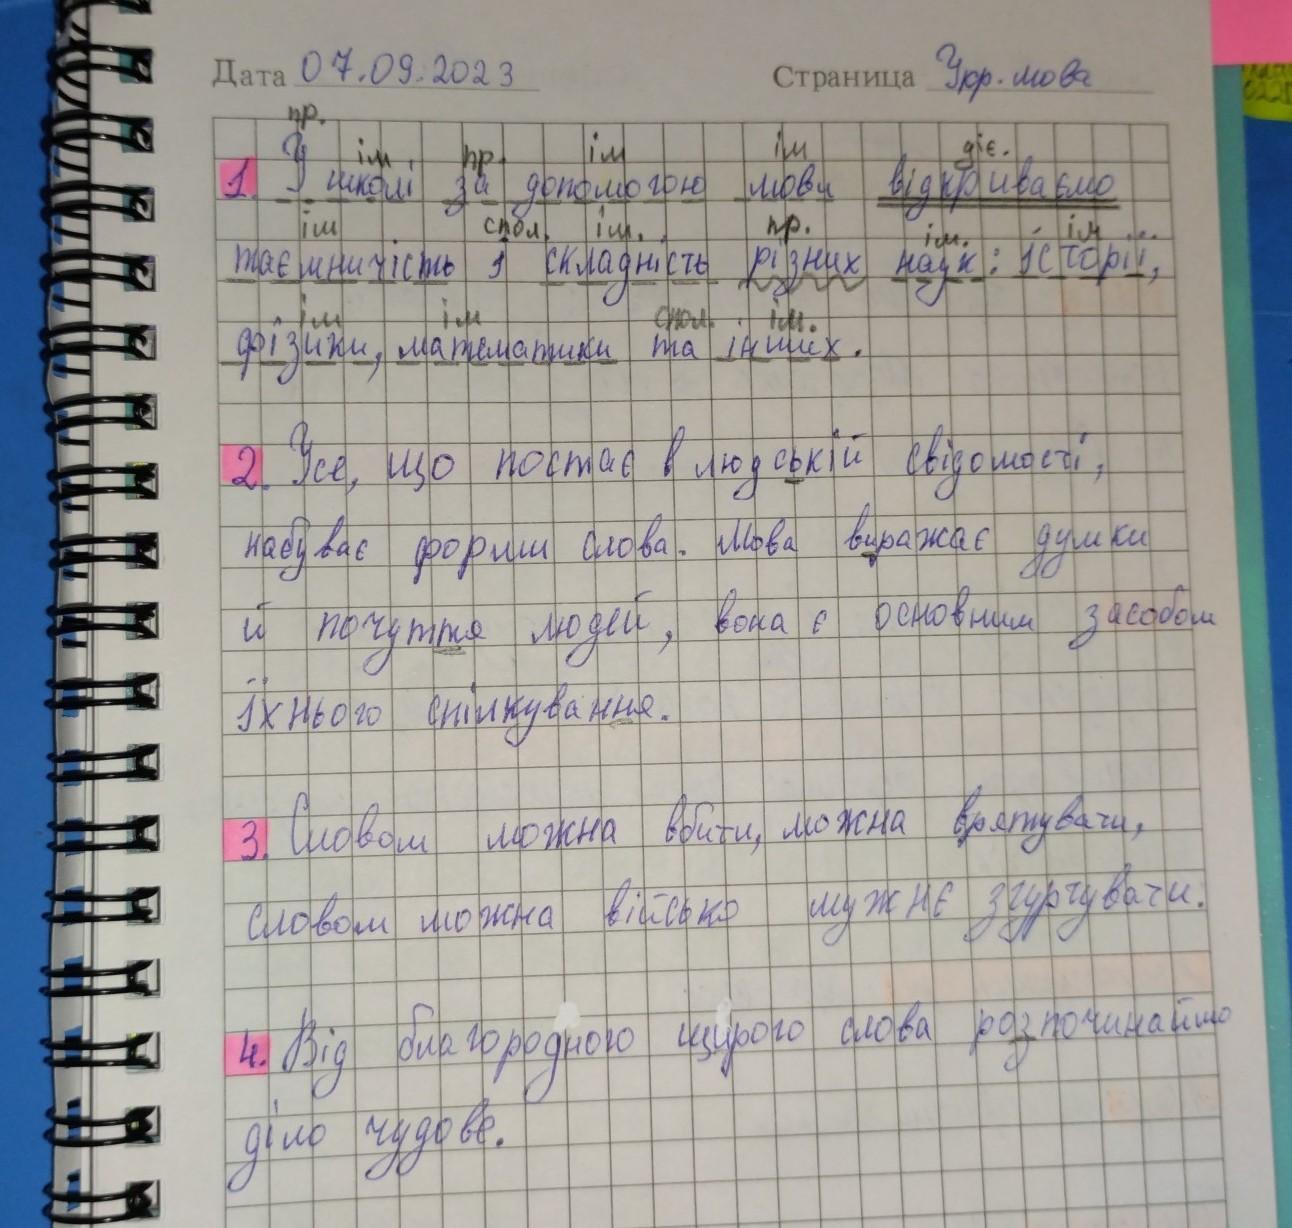 Дата 07.09.2023 Страница Укр. мова
пр. ім. пр. ім ім діє.
1. У школі за допомогою мови відкриваємо
ім спол. ім. пр. ім. ім
таємничість і складність різних наук: історії,
ім ім спол. ім.
фізики, математики та інших.
2. Усе, що постає в людській свідомості,
набуває форми слова. Мова виражає думки
й почуття людей, вона є основним засобом
їхнього спілкування.
3. Словом можна вбити, можна врятувати,
словом можна військо мужнє згуртувати.
4. Від благородного щирого слова розпочинаймо
діло чудове.